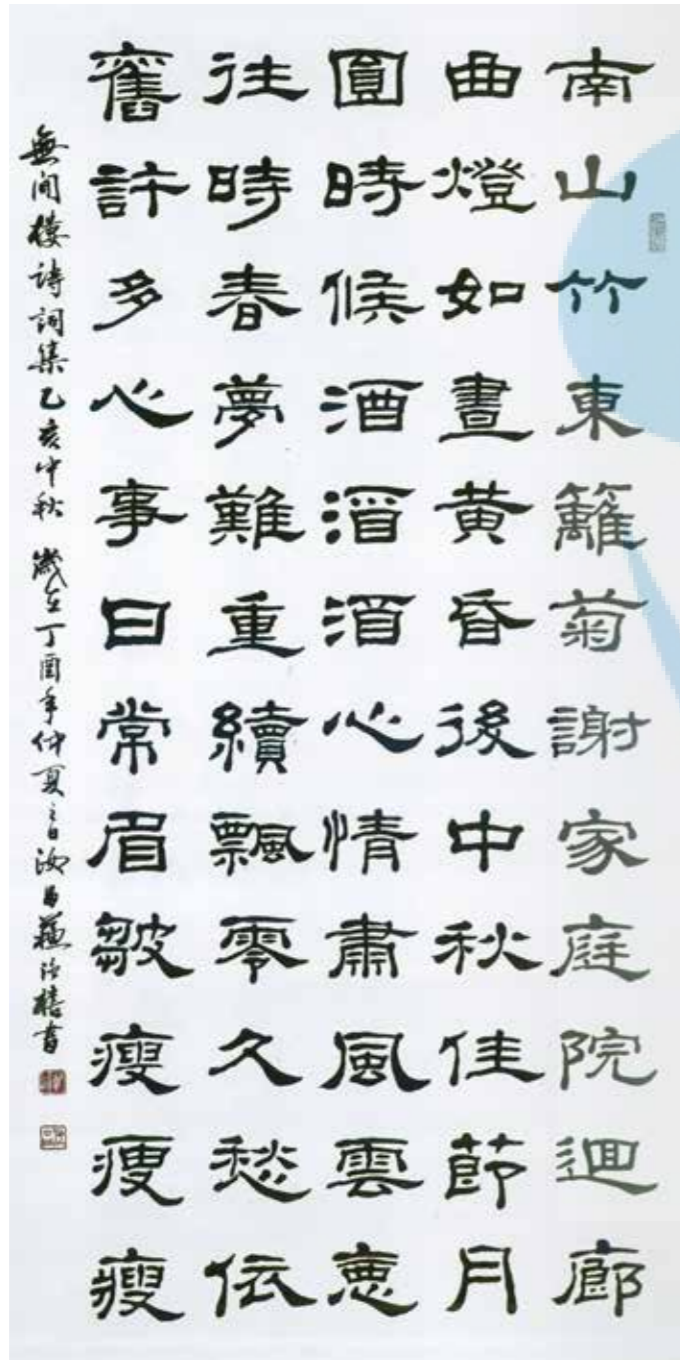 南山竹東籬菊謝家庭院迴廊
曲燈如晝黃昏後中秋佳節月
圓時候酒酒酒心情肅風雲恵
往時春夢難重續飄零久愁依
舊許多心事日常眉皺瘦瘦瘦
無間樓詩詞集乙亥中秋 歲在丁酉年仲夏之日汝昌蘇書